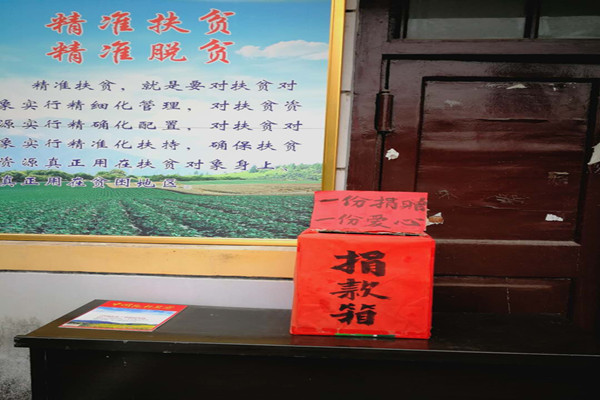 精准扶贫
精准脱贫
精准扶贫，就是要对扶贫对
象实行精细化管理，对扶贫资
源实行精确化配置，对扶贫对
象实行精准化扶持，确保扶贫
资源真正用在扶贫对象身上
真正用在贫困地区
一份捐赠
一份爱心
捐
款
箱